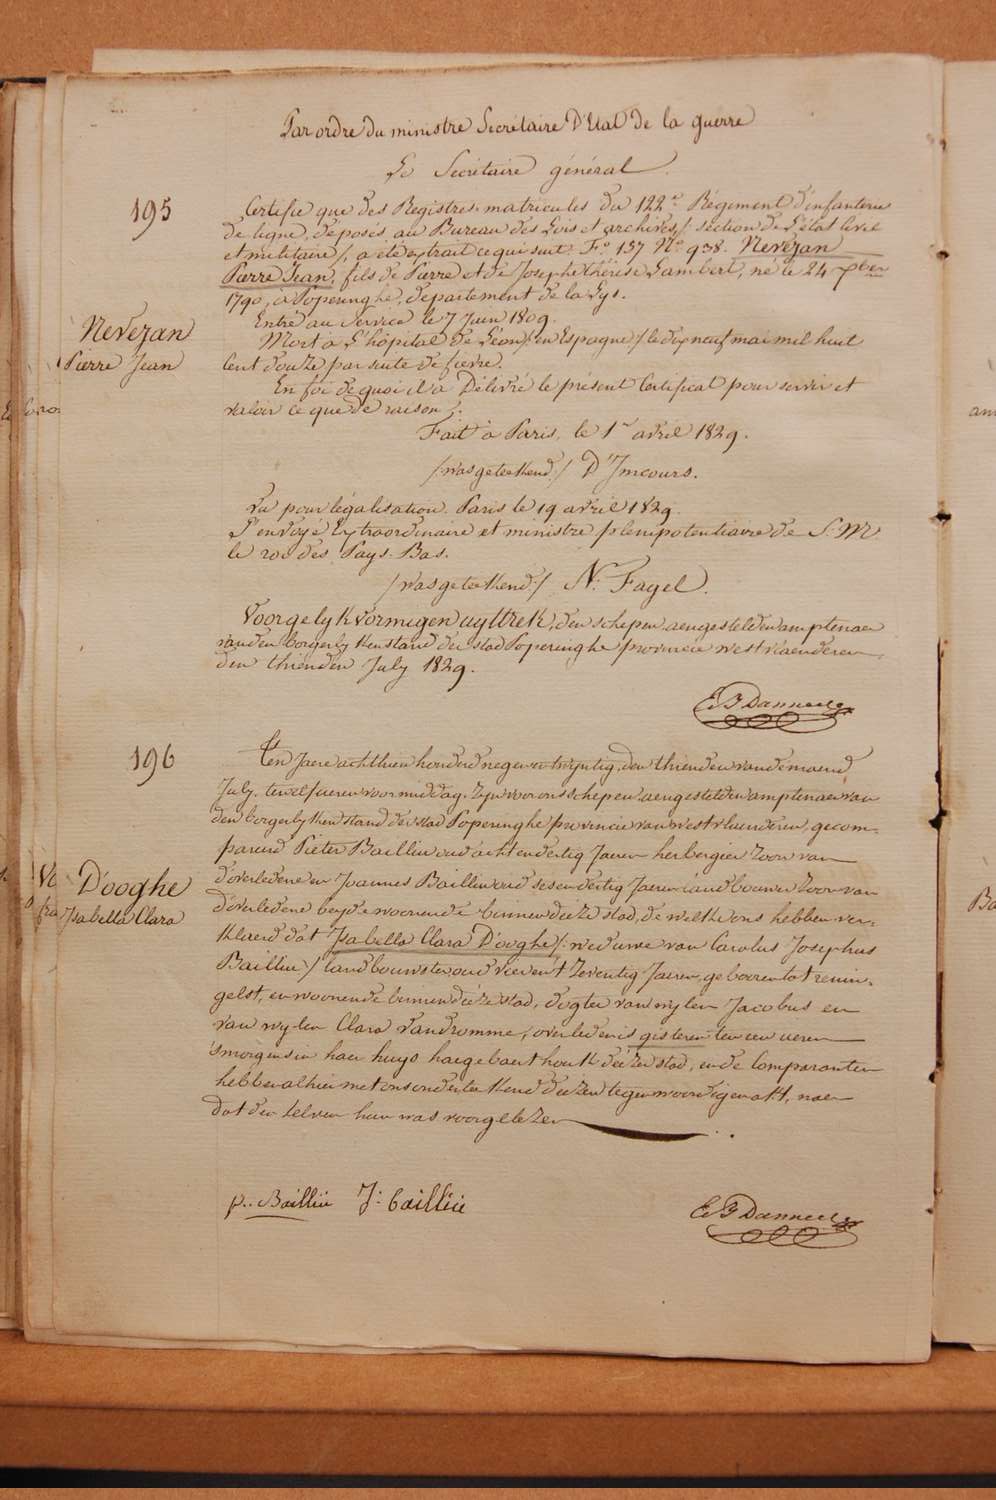 Par ordre du ministre Secrétaire D'Etat de la guerre
Le Secrétaire général.
195
Certifie que des Registres matricules du 122e Régiment d'infanterie
de ligne, déposés au Bureau des Lois et archives /: section de l'état Civil
et militaire /, a été extrait ce qui suit. Fo 157 No 938. Nevezan
Pierre Jean, fils de Pierre et de Josephe Thérèse Lambert, né le 24
1790, à Poperinghe, departement de la Lys.
Entré au Service le 7 Juin 1809.
Nevezan
Pierre Jean
Mort à L'hôpital de Léon /en Espagne/ le dix neuf mai mil huit
Cent douze par suite de fievre.
En foi de quoi il a Délivré le présent Certificat pour servir et
valoir ce que de raison.
Fait à Paris, le 1r avril 1829.
/was geteekend:/ D'Jncours.
Vu pour légalisation. Paris le 19 avril 1829.
L'envoyé Extraordinaire et ministre plenipotentiaire de S. M.
le roi des Pays-Bas.
/was geteekend:/ N. Fagel.
Voorgelyk vormigen uyttrek, den schepen aengestelden amptenaer
van den borgerlyken stand der stad Poperinghe provincie westvlaenderen,
den thienden July 1829.
E B Danneels
196
Ten Jaere achthien honderd negenentwyntig, den thienden van de maend
July, ten elf ueren voormiddag. Zyn voor ons schepen aengestelden amptenaer van
den borgerlyken stand der stad Poperinghe provincie van westvlaenderen, gecom-
pareerd Pieter Baillieu oud achtendertig Jaeren herbergier Zoon van
D'ooghe
Isabella Clara
d'overledene en Joannes Baillieu oud sesendertig Jaeren landbouwer Zoon van
d'overledene beyde woonende binnen deéze stad, de welke ons hebben ver-
klaerd dat Isabella Clara D'ooghe /: weduwe van Carolus Josephus
Baillieu / landbouwster oud vierent Zeventig Jaeren, gebooren tot renin-
gelst, en woonende binnen deéze stad, dogter van wylen Jacobus en
van wylen Clara Vandromme, overleden is gisteren ten een ueren
'smorgens in haer huys haegebaert houk deézer stad, en de Comparanten
hebben alhier met ons onderteekend deézen tegenwoordigen akt, naer
dat den selven hun was voorgelezen
p.. Baillieu J: baillieu
E B Danneels